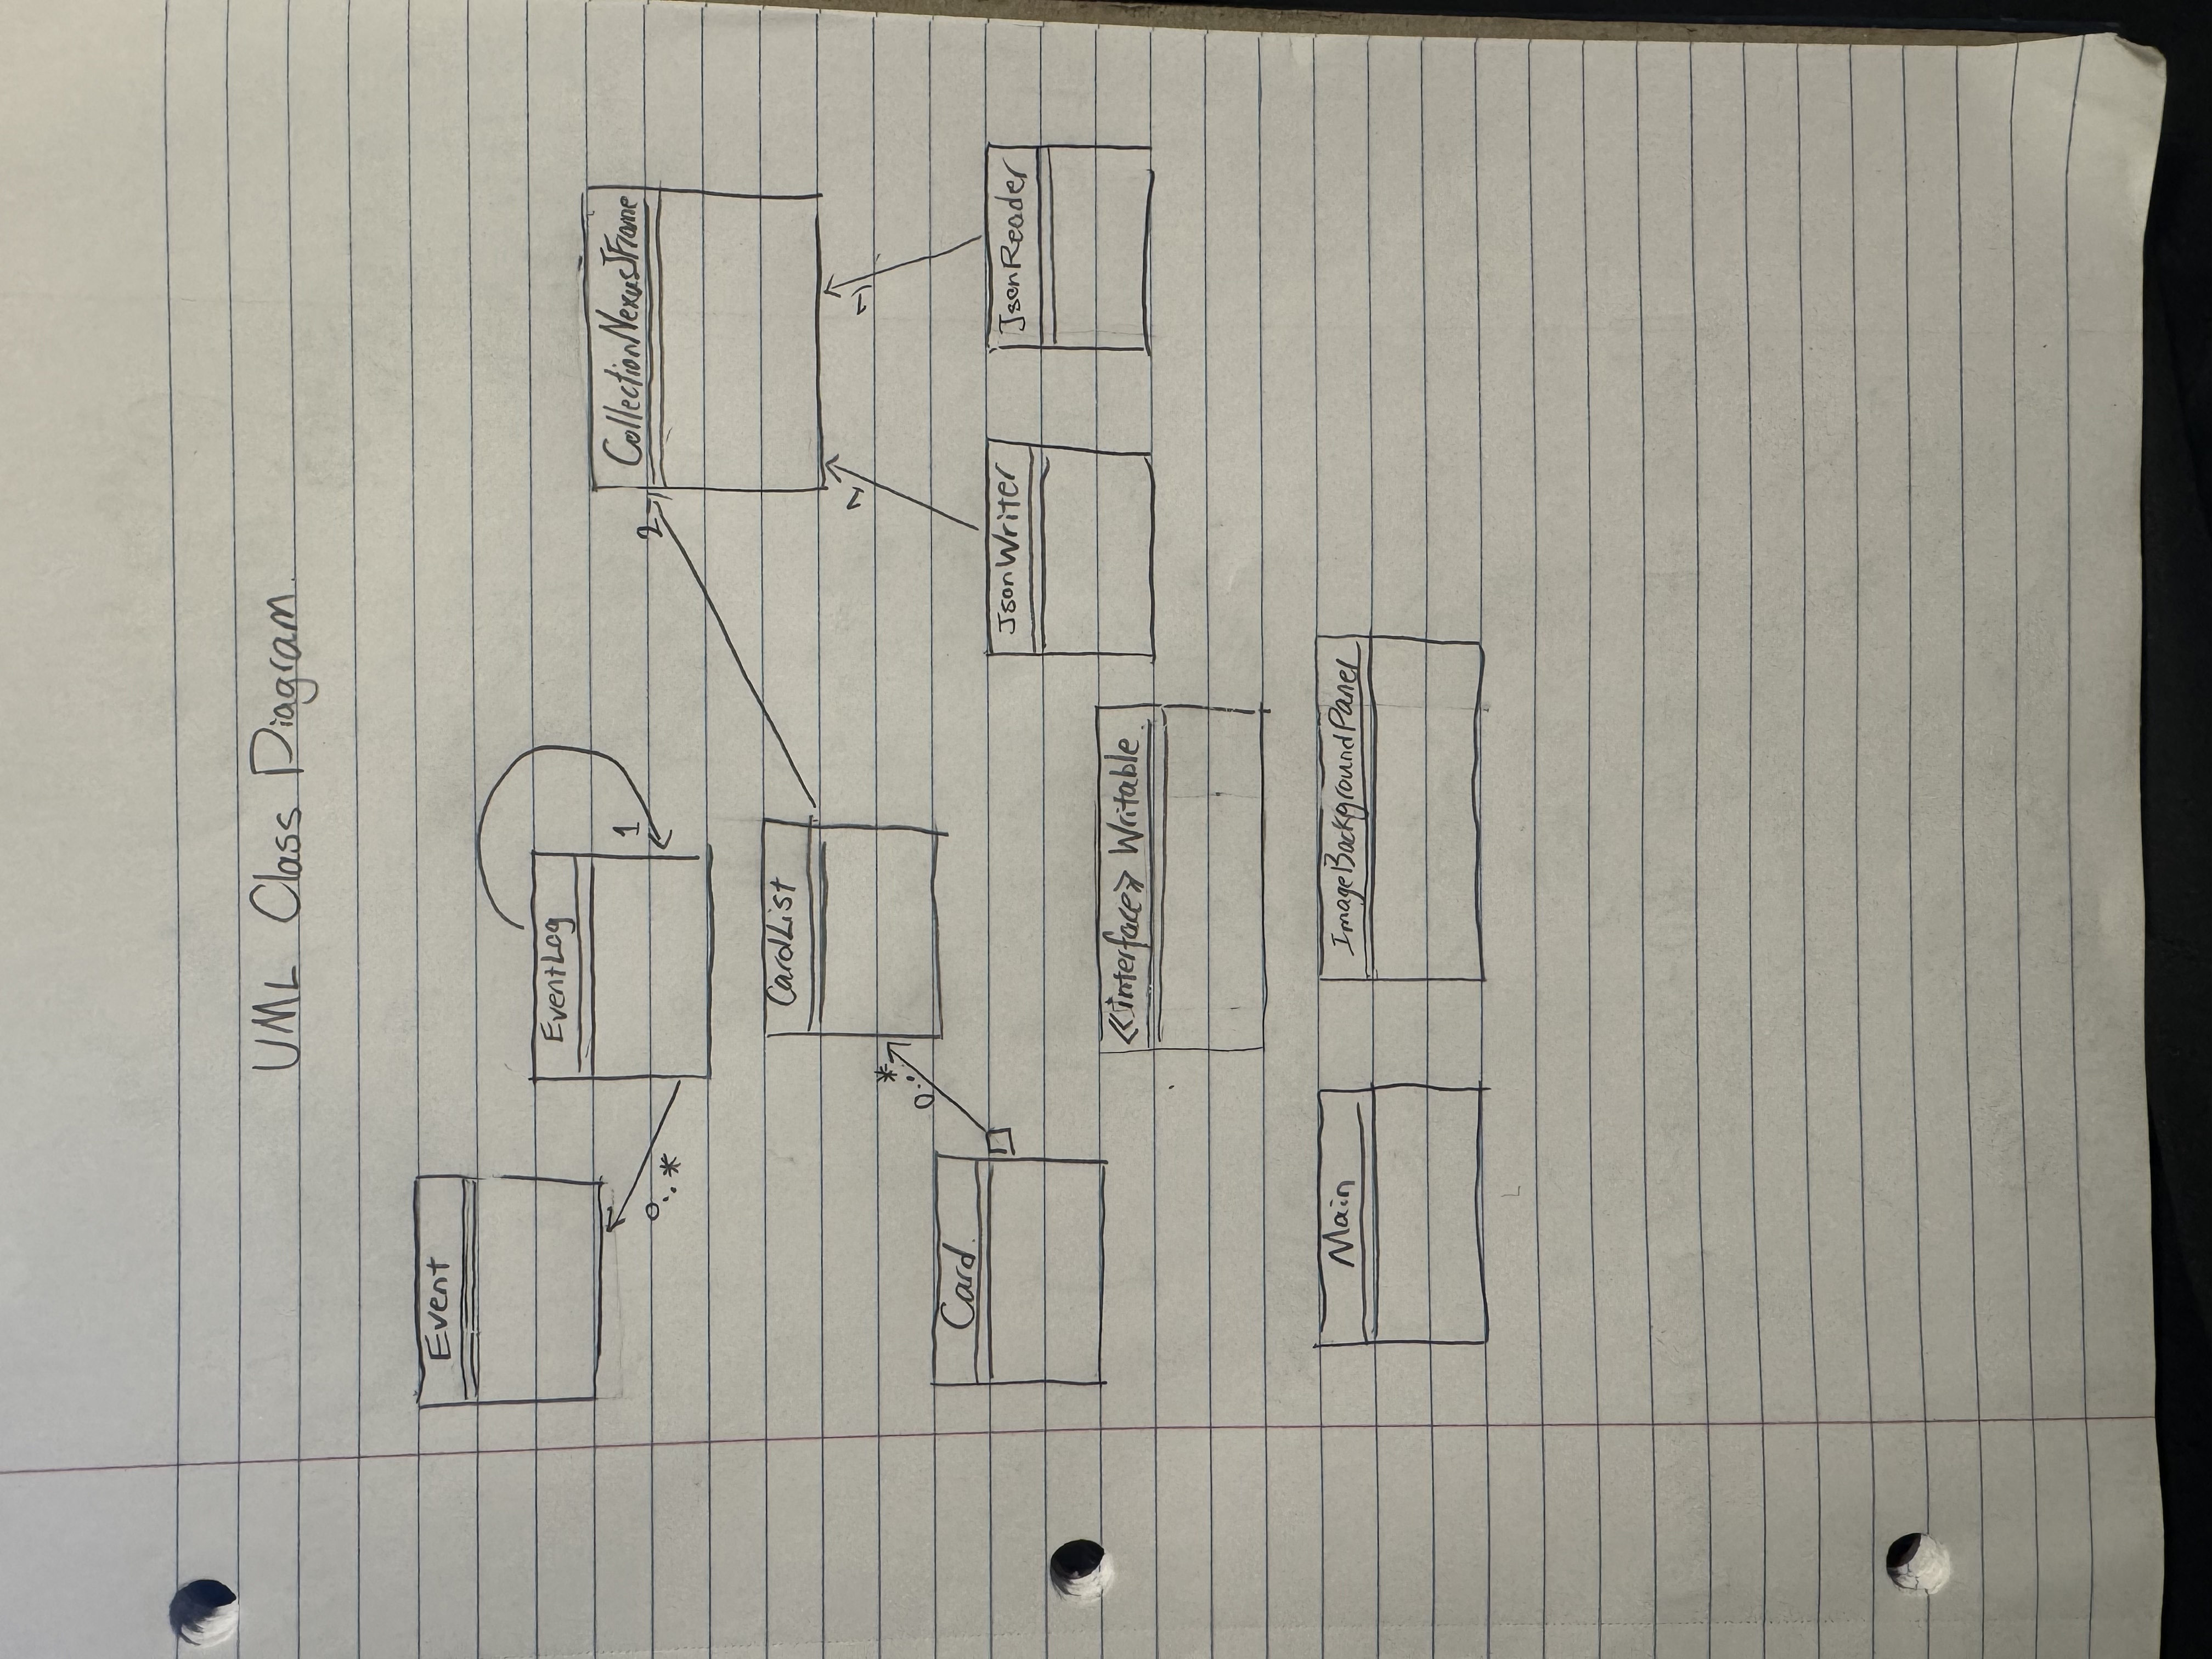 UML Class Diagram.
Event
EventLog
1
CollectionNexusJFrame
0..*
2
CardList
1
1
0..*
Card.
JsonWriter
JsonReader
<<interface>> Writable.
Main
ImageBackgroundPanel